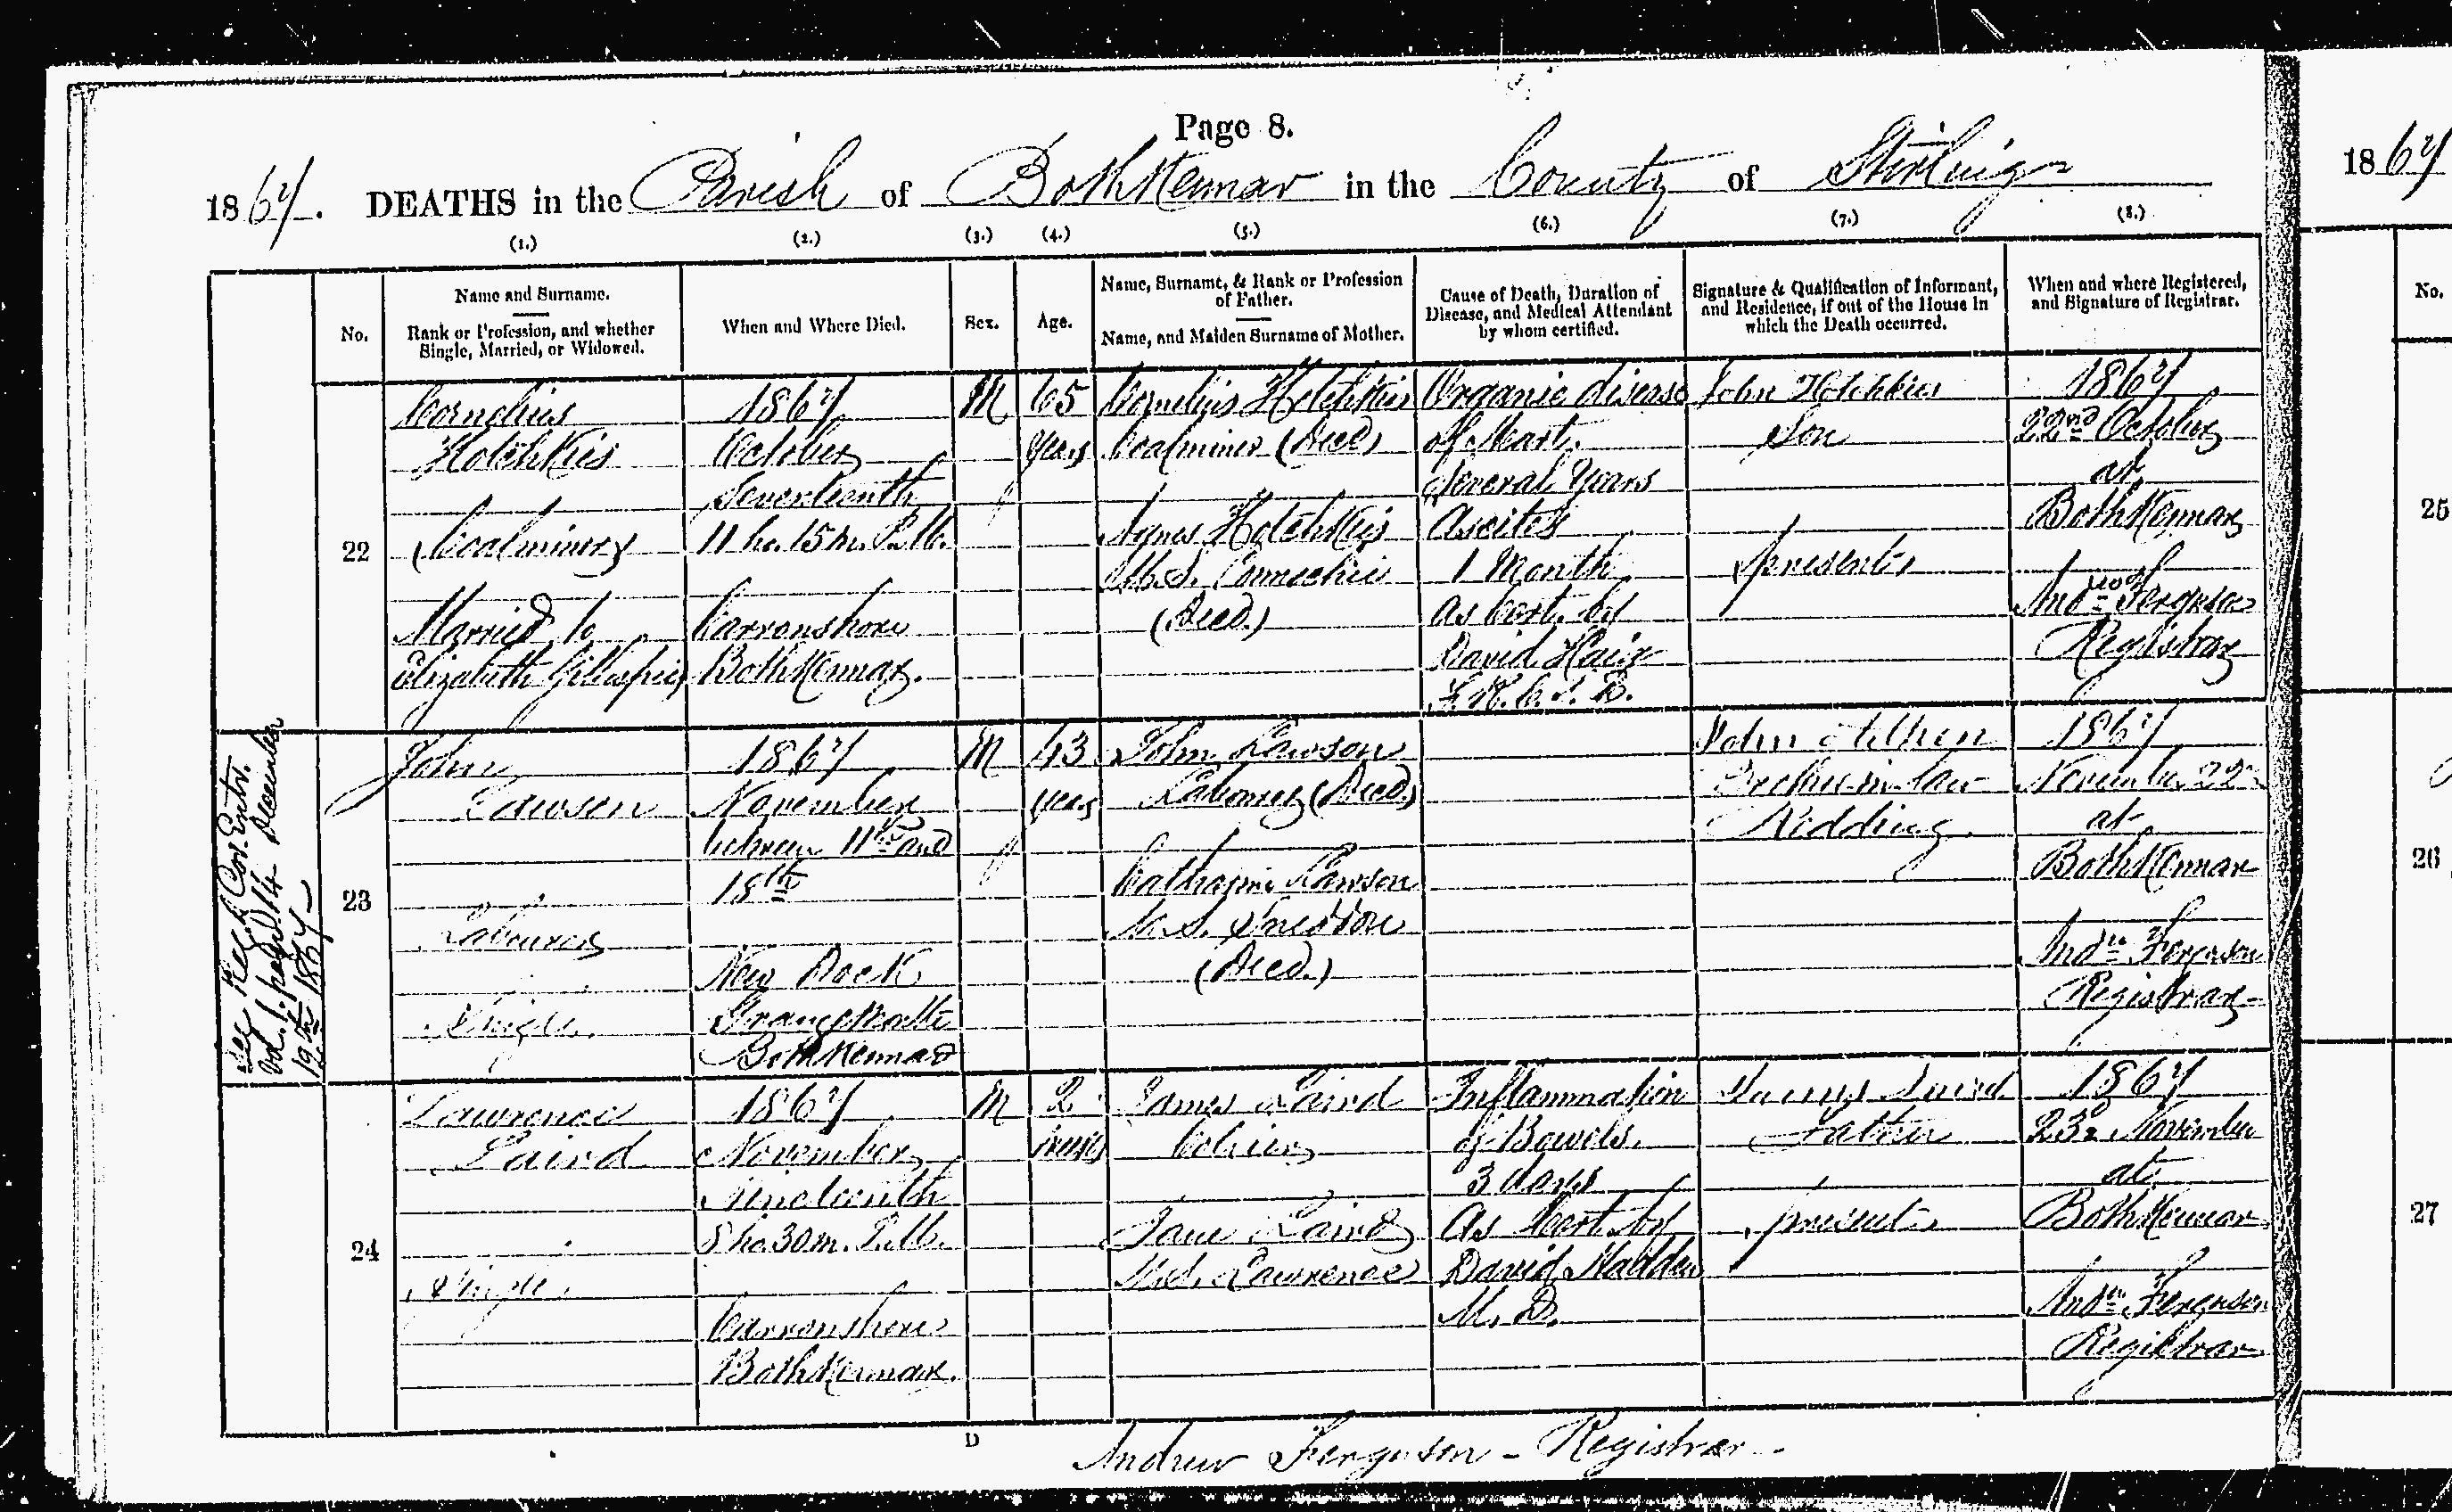 Page 8.
1867. DEATHS in the Parish of Bothkennar in the County of Stirling
1867
(1.) (2.) (3.) (4.) (5.) (6.) (7.) (8.)
No.
Name and Surname.
Rank or Profession, and whether
Single, Married, or Widowed.
When and Where Died.
Sex.
Age.
Name, Surname, & Rank or Profession
of Father.
Name, and Maiden Surname of Mother.
Cause of Death, Duration of
Disease, and Medical Attendant
by whom certified.
Signature & Qualification of Informant,
and Residence, if out of the House in
which the Death occurred.
When and where Registered,
and Signature of Registrar.
No.
22
Cornelius
Hotchkies
Coalminer
Married to
Elizabeth Gillespie
1867
October
Seventeenth
11 ho. 15 m. P.M.
Carronshore
Bothkennar.
M
65
years
Cornelius Hotchkies
Coalminer (Deced)
Agnes Hotchkies
M.S.
(Deced.)
Organic disease
of Heart.
Several Years
Ascites
1 Month
As Cert. by
David Haig
John Hotchkies
Son
present
1867
22nd October
at
Bothkennar
Andw Ferguson
Registrar
See Reg. Cor. Entr.
Vol. 1. page 14 December
19th 1867
23
John
Lawson
Labourer
Single.
1867
November
between 11th and
18th
New Dock
Grangemouth
Bothkennar
M
43
years
John Lawson
Labourer (Deced.)
Catharine Lawson
M.S. Sneddon
(Deced.)
John Aitken
Brother in law
Redding
1867
November 22
at
Bothkennar
Andw Ferguson
Registrar
24
Lawrence
Laird
Single.
1867
November
Nineteenth
8 ho. 30 m. P.M.
Carronshore
Bothkennar.
M
2
James Laird
Collier
Jane Laird
M.S. Lawrence
Inflammation
of Bowels.
3 days
As Cert. by
David
M. D.
James Laird
Father
present
1867
23d November
at
Bothkennar
Andw Ferguson
Registrar
D
Andrew Ferguson - Registrar
25
26
27